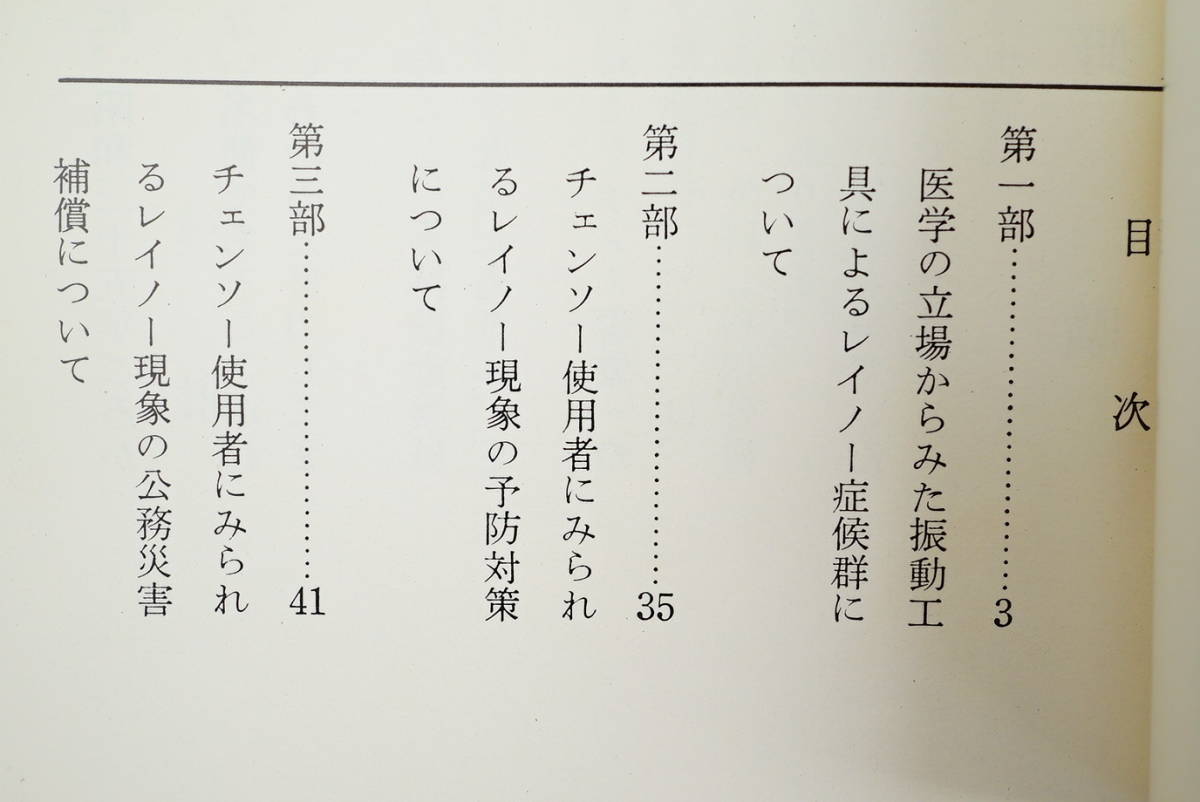 目次
第一部…………………………3
医学の立場からみた振動工
具によるレイノー症候群に
ついて
第二部…………………………35
チェンソー使用者にみられ
るレイノー現象の予防対策
について
第三部…………………………41
チェンソー使用者にみられ
るレイノー現象の公務災害
補償について